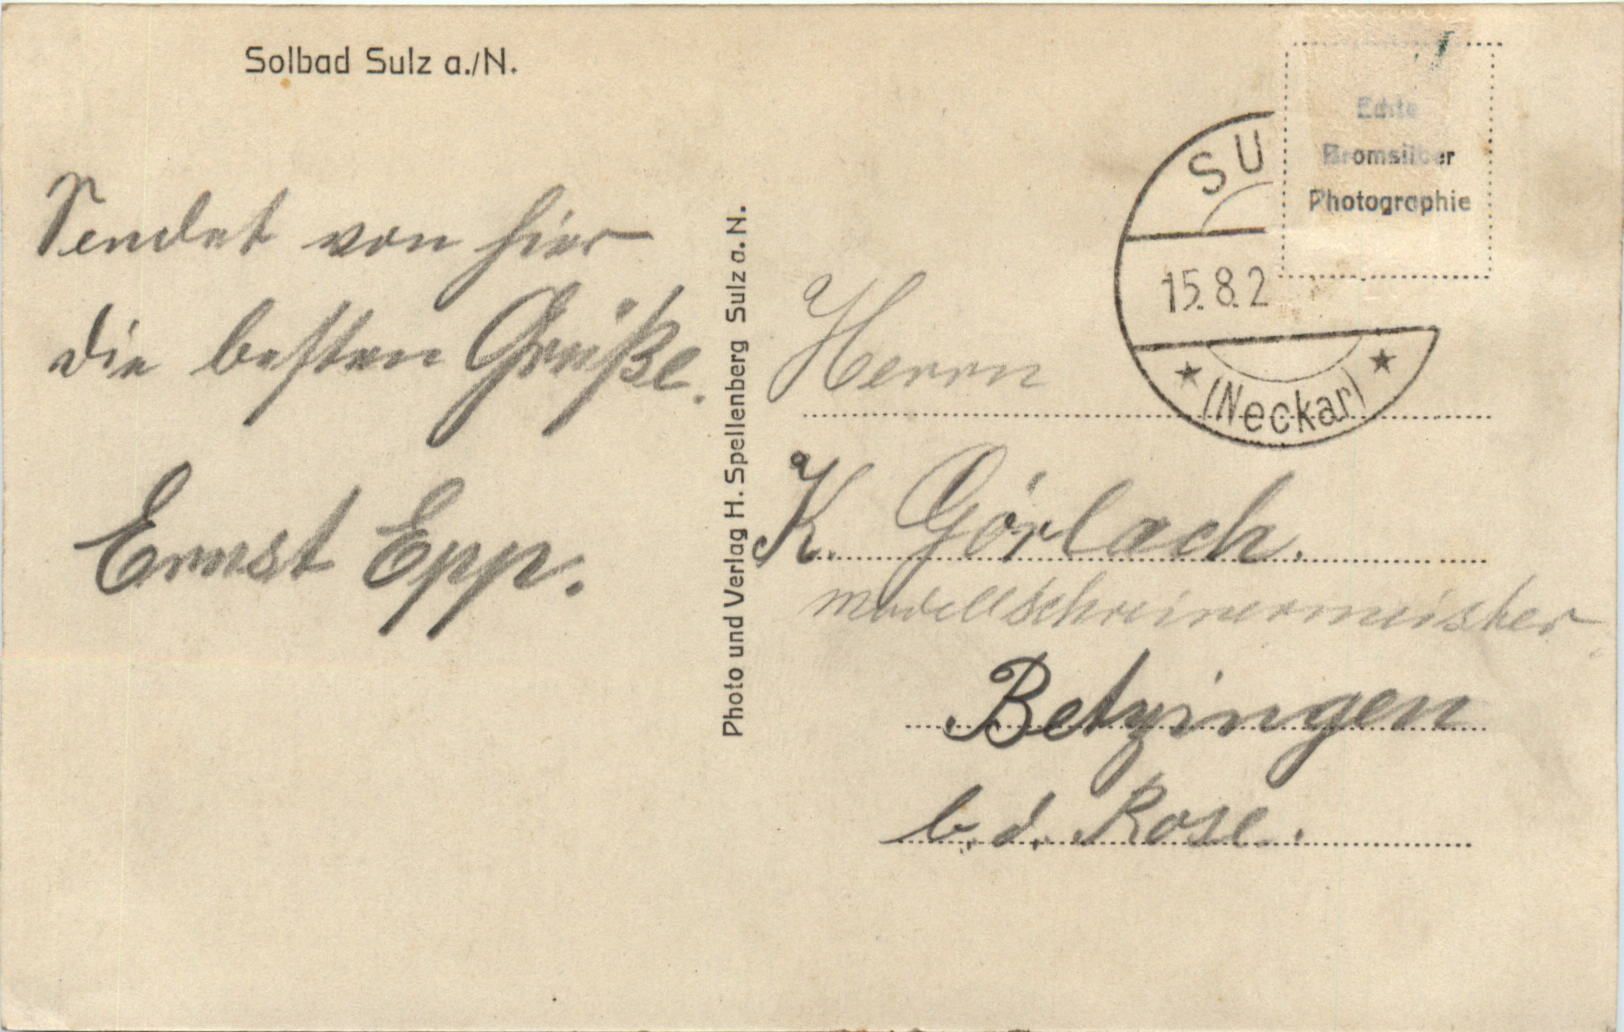 Solbad Sulz a./N.
Sendet von hier
die besten Grüße.
Ernst Epp.
Photo und Verlag H. Spellenberg Sulz a. N.
Echte
Bromsilber
Photographie
SU
15.8.2
(Neckar)
Herrn
K. Görlach.
Modellschreinermeister
Betzingen
b. d. Rose.